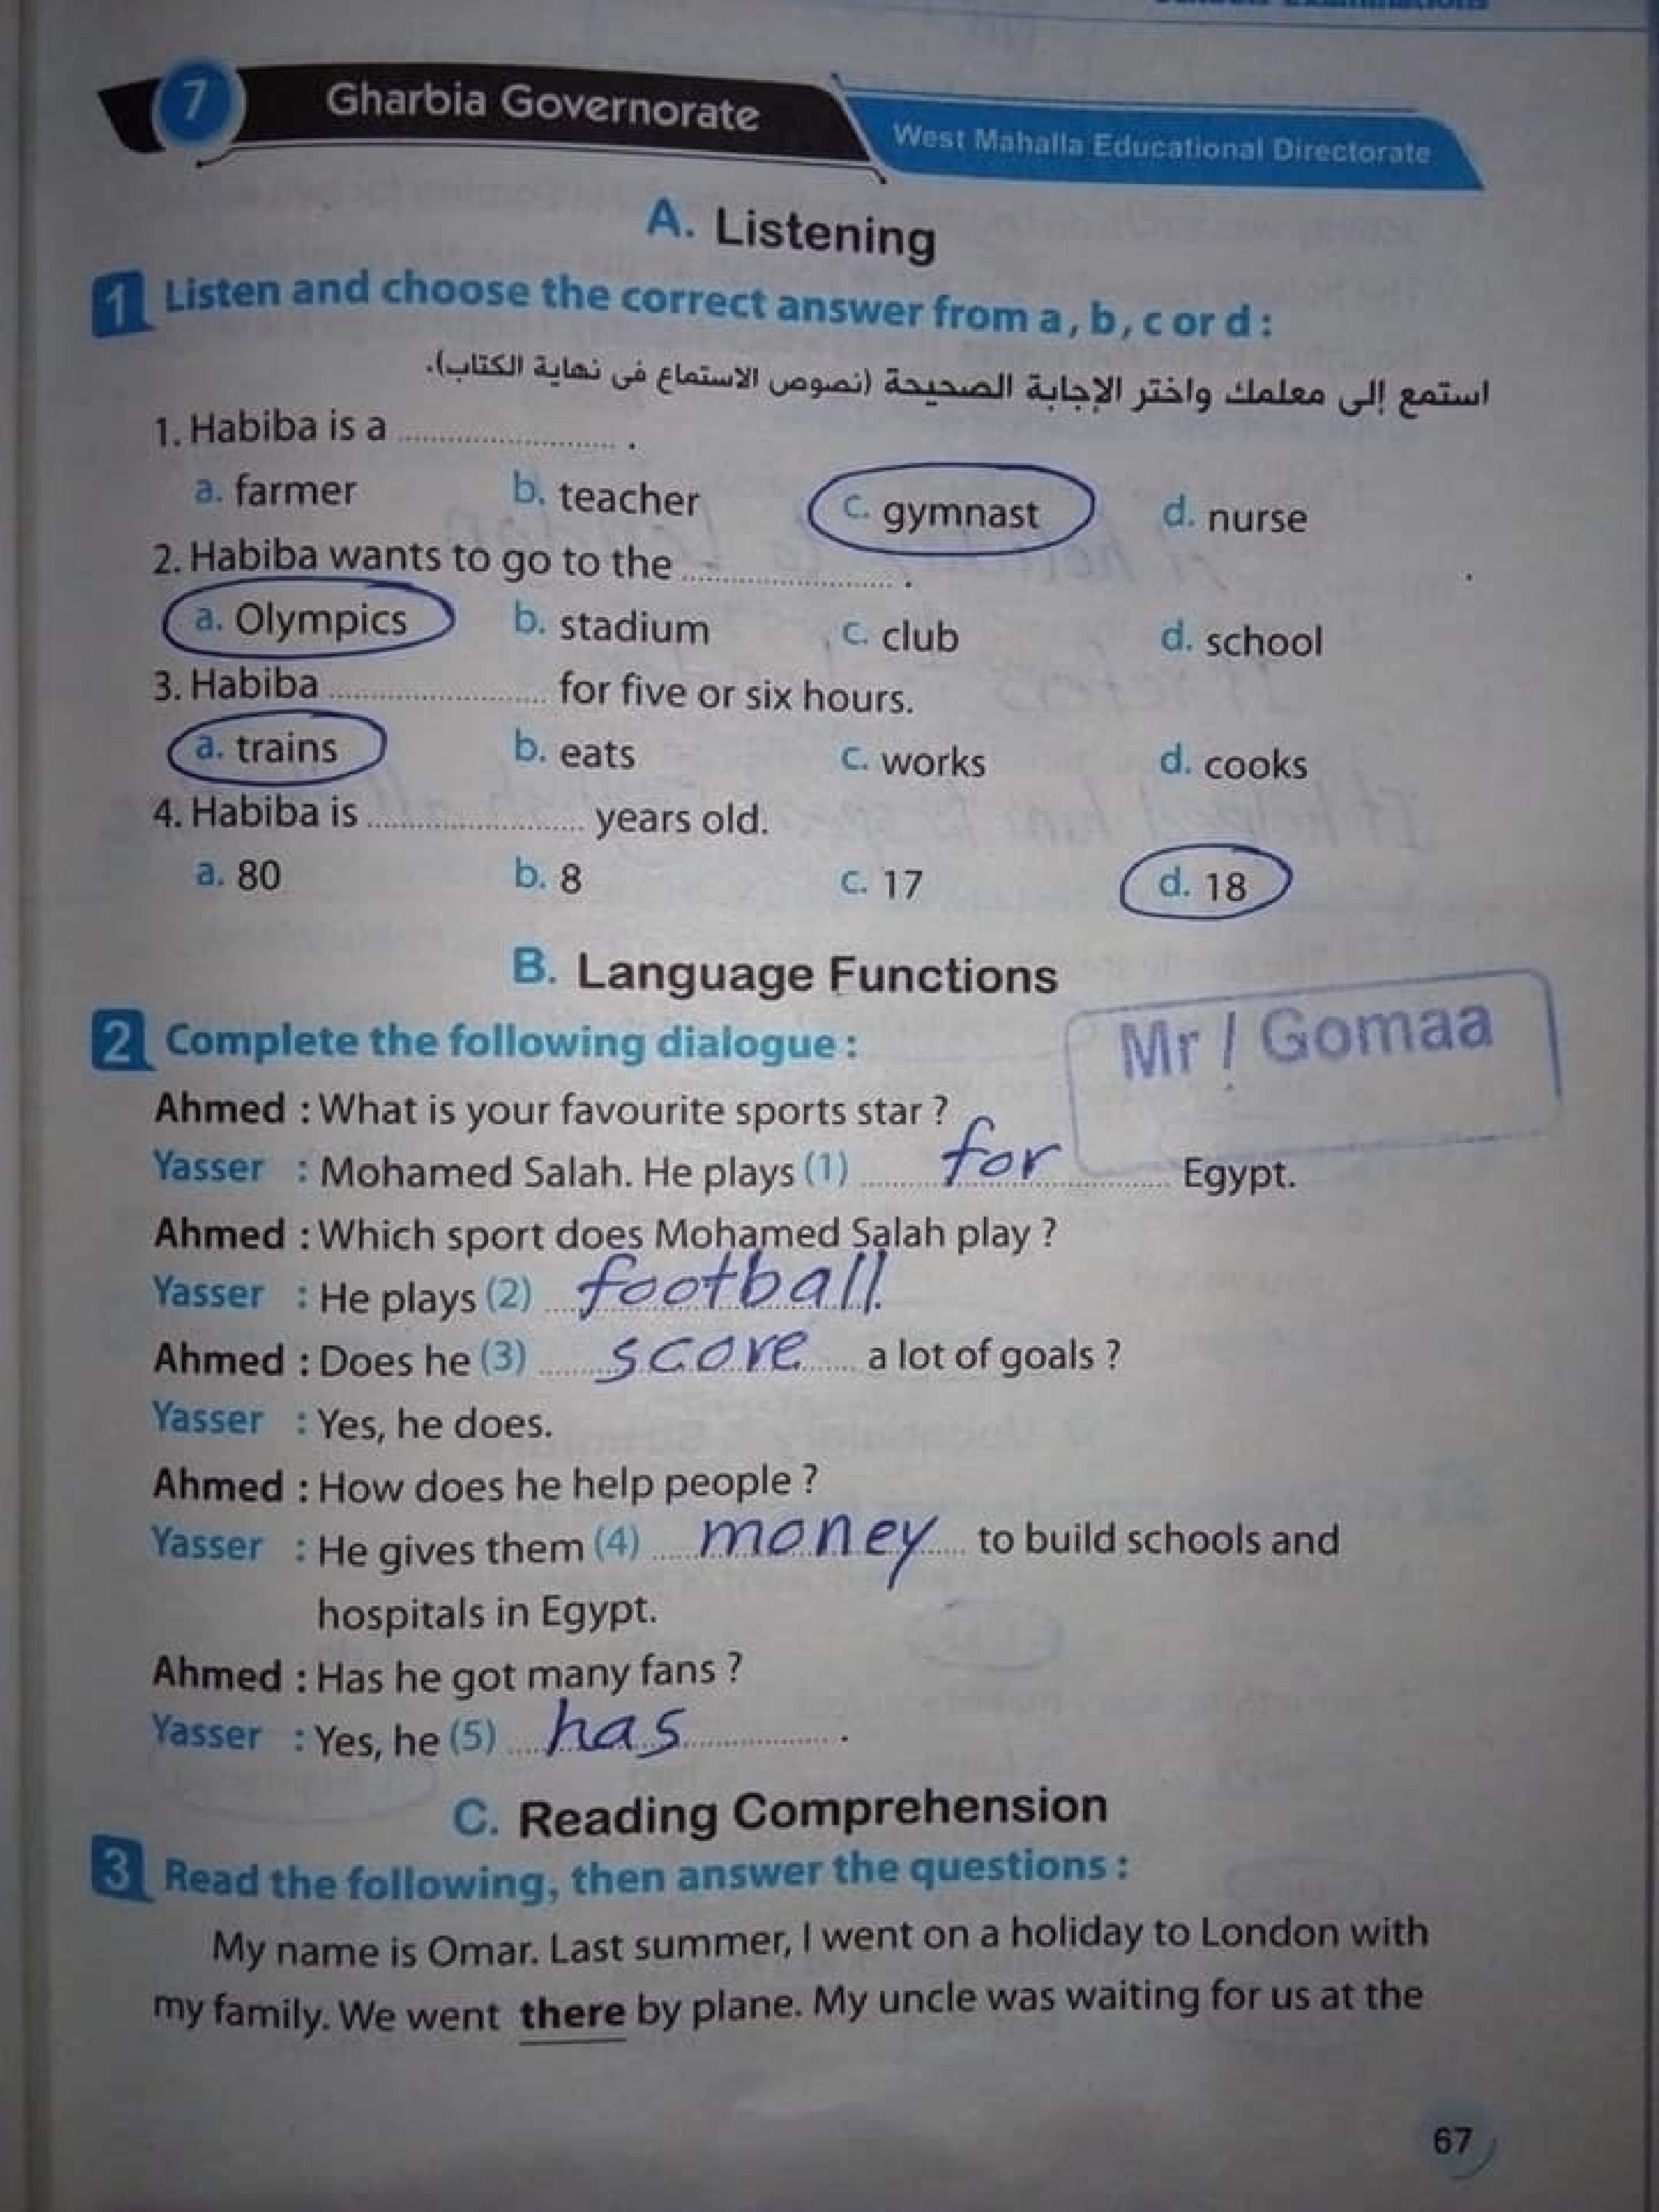 7 Gharbia Governorate
West Mahalla Educational Directorate
A. Listening
1 Listen and choose the correct answer from a, b, c or d :
استمع إلى معلمك واختر الإجابة الصحيحة (نصوص الاستماع فى نهاية الكتاب).
1. Habiba is a ........................ .
a. farmer b. teacher c. gymnast d. nurse
2. Habiba wants to go to the ........................ .
a. Olympics b. stadium c. club d. school
3. Habiba ........................ for five or six hours.
a. trains b. eats c. works d. cooks
4. Habiba is ........................ years old.
a. 80 b. 8 c. 17 d. 18
B. Language Functions
Mr / Gomaa
2 Complete the following dialogue :
Ahmed : What is your favourite sports star ?
Yasser : Mohamed Salah. He plays (1) for Egypt.
Ahmed : Which sport does Mohamed Salah play ?
Yasser : He plays (2) football.
Ahmed : Does he (3) score a lot of goals ?
Yasser : Yes, he does.
Ahmed : How does he help people ?
Yasser : He gives them (4) money to build schools and
hospitals in Egypt.
Ahmed : Has he got many fans ?
Yasser : Yes, he (5) has .
C. Reading Comprehension
3 Read the following, then answer the questions :
My name is Omar. Last summer, I went on a holiday to London with
my family. We went there by plane. My uncle was waiting for us at the
67